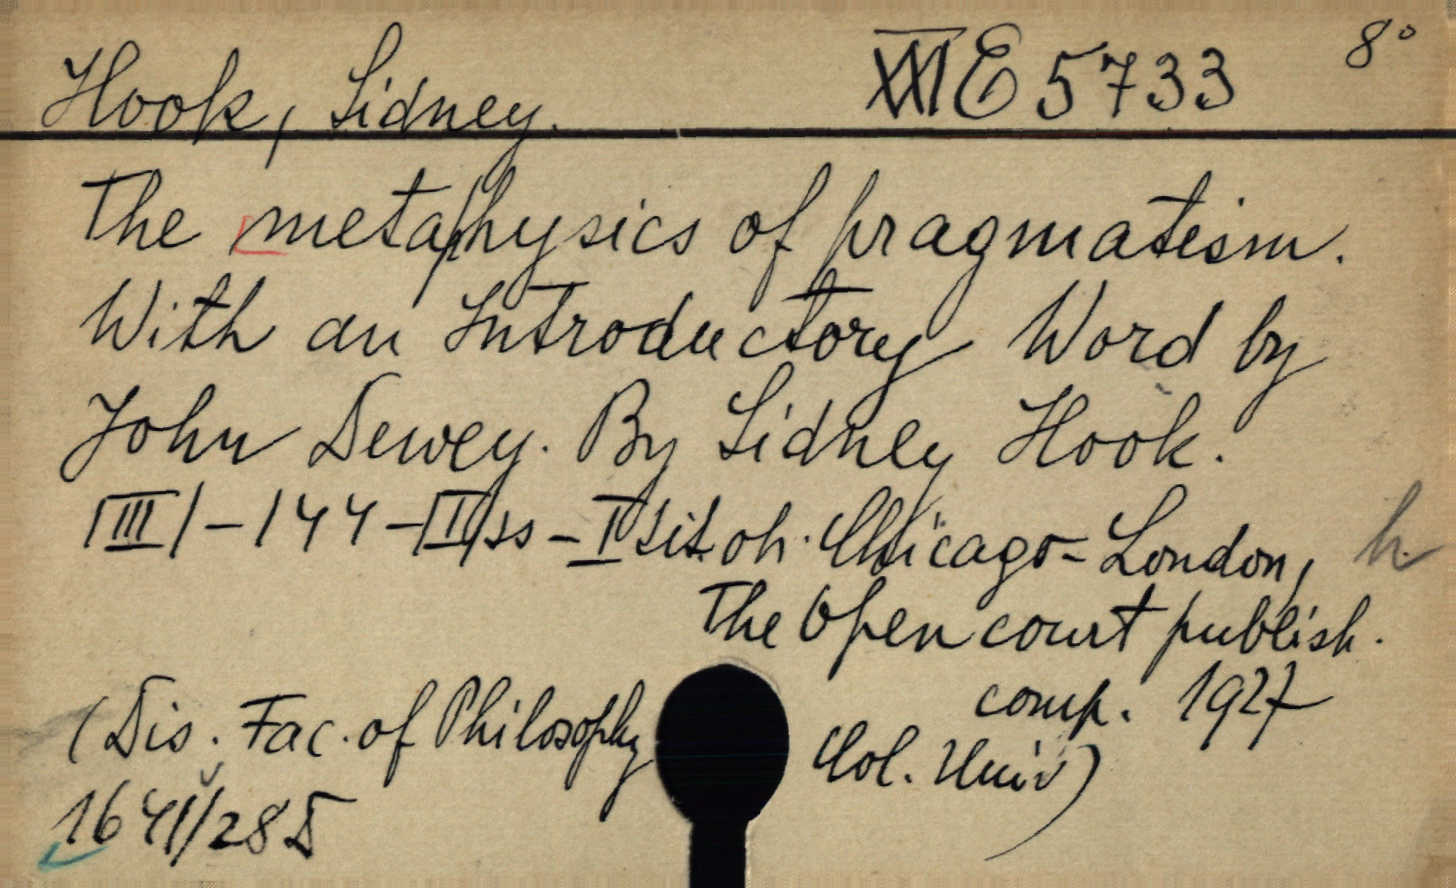 Hook, Sidney. XXI E 5733 8°
The metaphysics of pragmatism.
With an Introductory Word by
John Dewey. By Sidney Hook.
[III] - 144 - [II] ss - I sit oh. Chicago-London,
The Open court publish.
comp. 1927
(Dis. Fac. of Philosophy Col. Univ)
1641/28 D